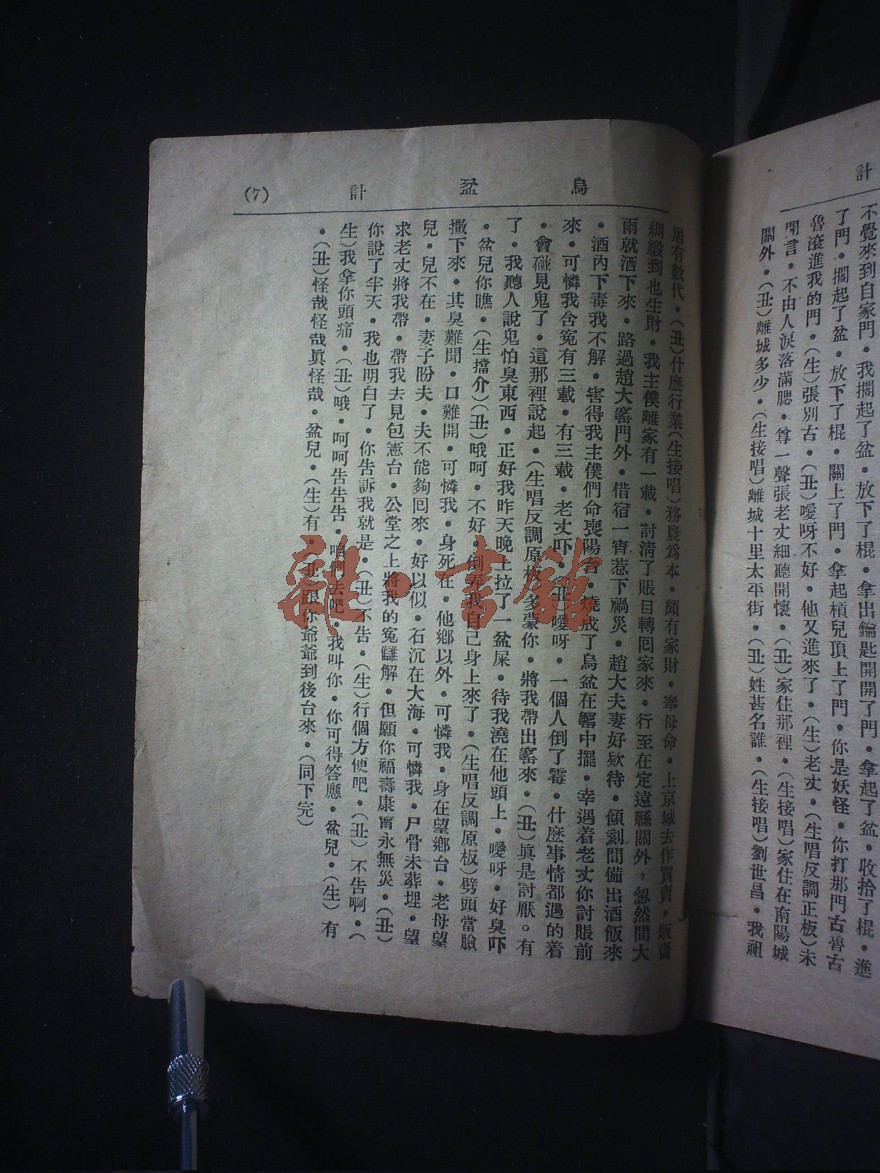 計
不覺來到自家門•我擱起了盆•放下了棍•拿出鑰匙開開了門•拿起了盆•收拾了棍•進
了門•擱起了盆•放下了棍•關上了門•拿起槓兒頂上了門•你是妖怪•你打那門古脅古
魯滾進我的門•(生)張別古•(丑)噯呀不好•他又進來了•(生)老丈•(生唱反調正板)未
開言•不由人淚落滿腮•尊一聲張老丈細聽開懷•(丑)家住那裡•(生接唱)家住在南陽城
關外•(丑)離城多少•(生接唱)離城十里太平街•(丑)姓甚名誰•(生接唱)劉世昌•我祖
烏盆計 (7)
居有數代•(丑)什麽行業(生接唱)務農爲本•頗有家財•奉母命•上京城去作買賣•販賣
綢緞到也生財•我主僕離家有一載•討清了賬目轉囘家來•行至在定遠縣關外•忽然間大
雨就洒下來•路過趙大窰門外•借宿一宵惹下禍災•趙大夫妻好欵待•傾刻間備出酒飯來
•酒內下毒我不解•害得我主僕們命喪陽台•燒成了烏盆在窰中擺•幸遇着老丈你討賬前
來•可憐我含冤有三載•有三載•老丈吓•(丑)噯呀•一個人倒了霉•什麽事情都遇的着
•會碰見鬼了•這那裡說起•(生唱反調原板)多蒙你•將我帶出窰來•(丑)眞是討厭。有
了•我聽人說鬼怕臭東西•正好我昨天晚上拉了一盆屎•待我澆在他頭上•噯呀•好臭吓
•盆兒你瞧•(生擋介)(丑)哦呵•不好•倒弄我自己身上來了•(生唱反調原板)劈頭當臉
撒下來•其臭難聞•口難開•可憐我•身死在•他鄉以外•可憐我•身在望鄉台•老母望
兒•兒不在•妻子盼夫•夫不能夠囘來•好以似•石沉在大海•可憐我•尸骨未葬埋•望
求老丈將我帶•帶我去見包憲台•公堂之上將我的冤讎解•但願你福壽康甯永無災•(丑)
你說了半天•我也明白了•你告訴我就是•(丑)不告•(生)行個方便吧•(丑)不告啊•(
生)我拿你頭痛•(丑)哦•呵呵告告告•咱們去吧•我叫你•你可得答應•盆兒•(生)有
•(丑)怪哉怪哉眞怪哉•盆兒•(生)有•(丑)跟你爺爺到後台來•(同下完)